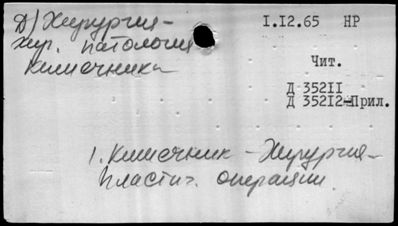 Д/Хирургия-
хир. патология
кишечника
1.12.65 НР
Чит.
Д 35211
Д 35212-Прил.
1. Кишечник - Хирургия-
пластич. операции.